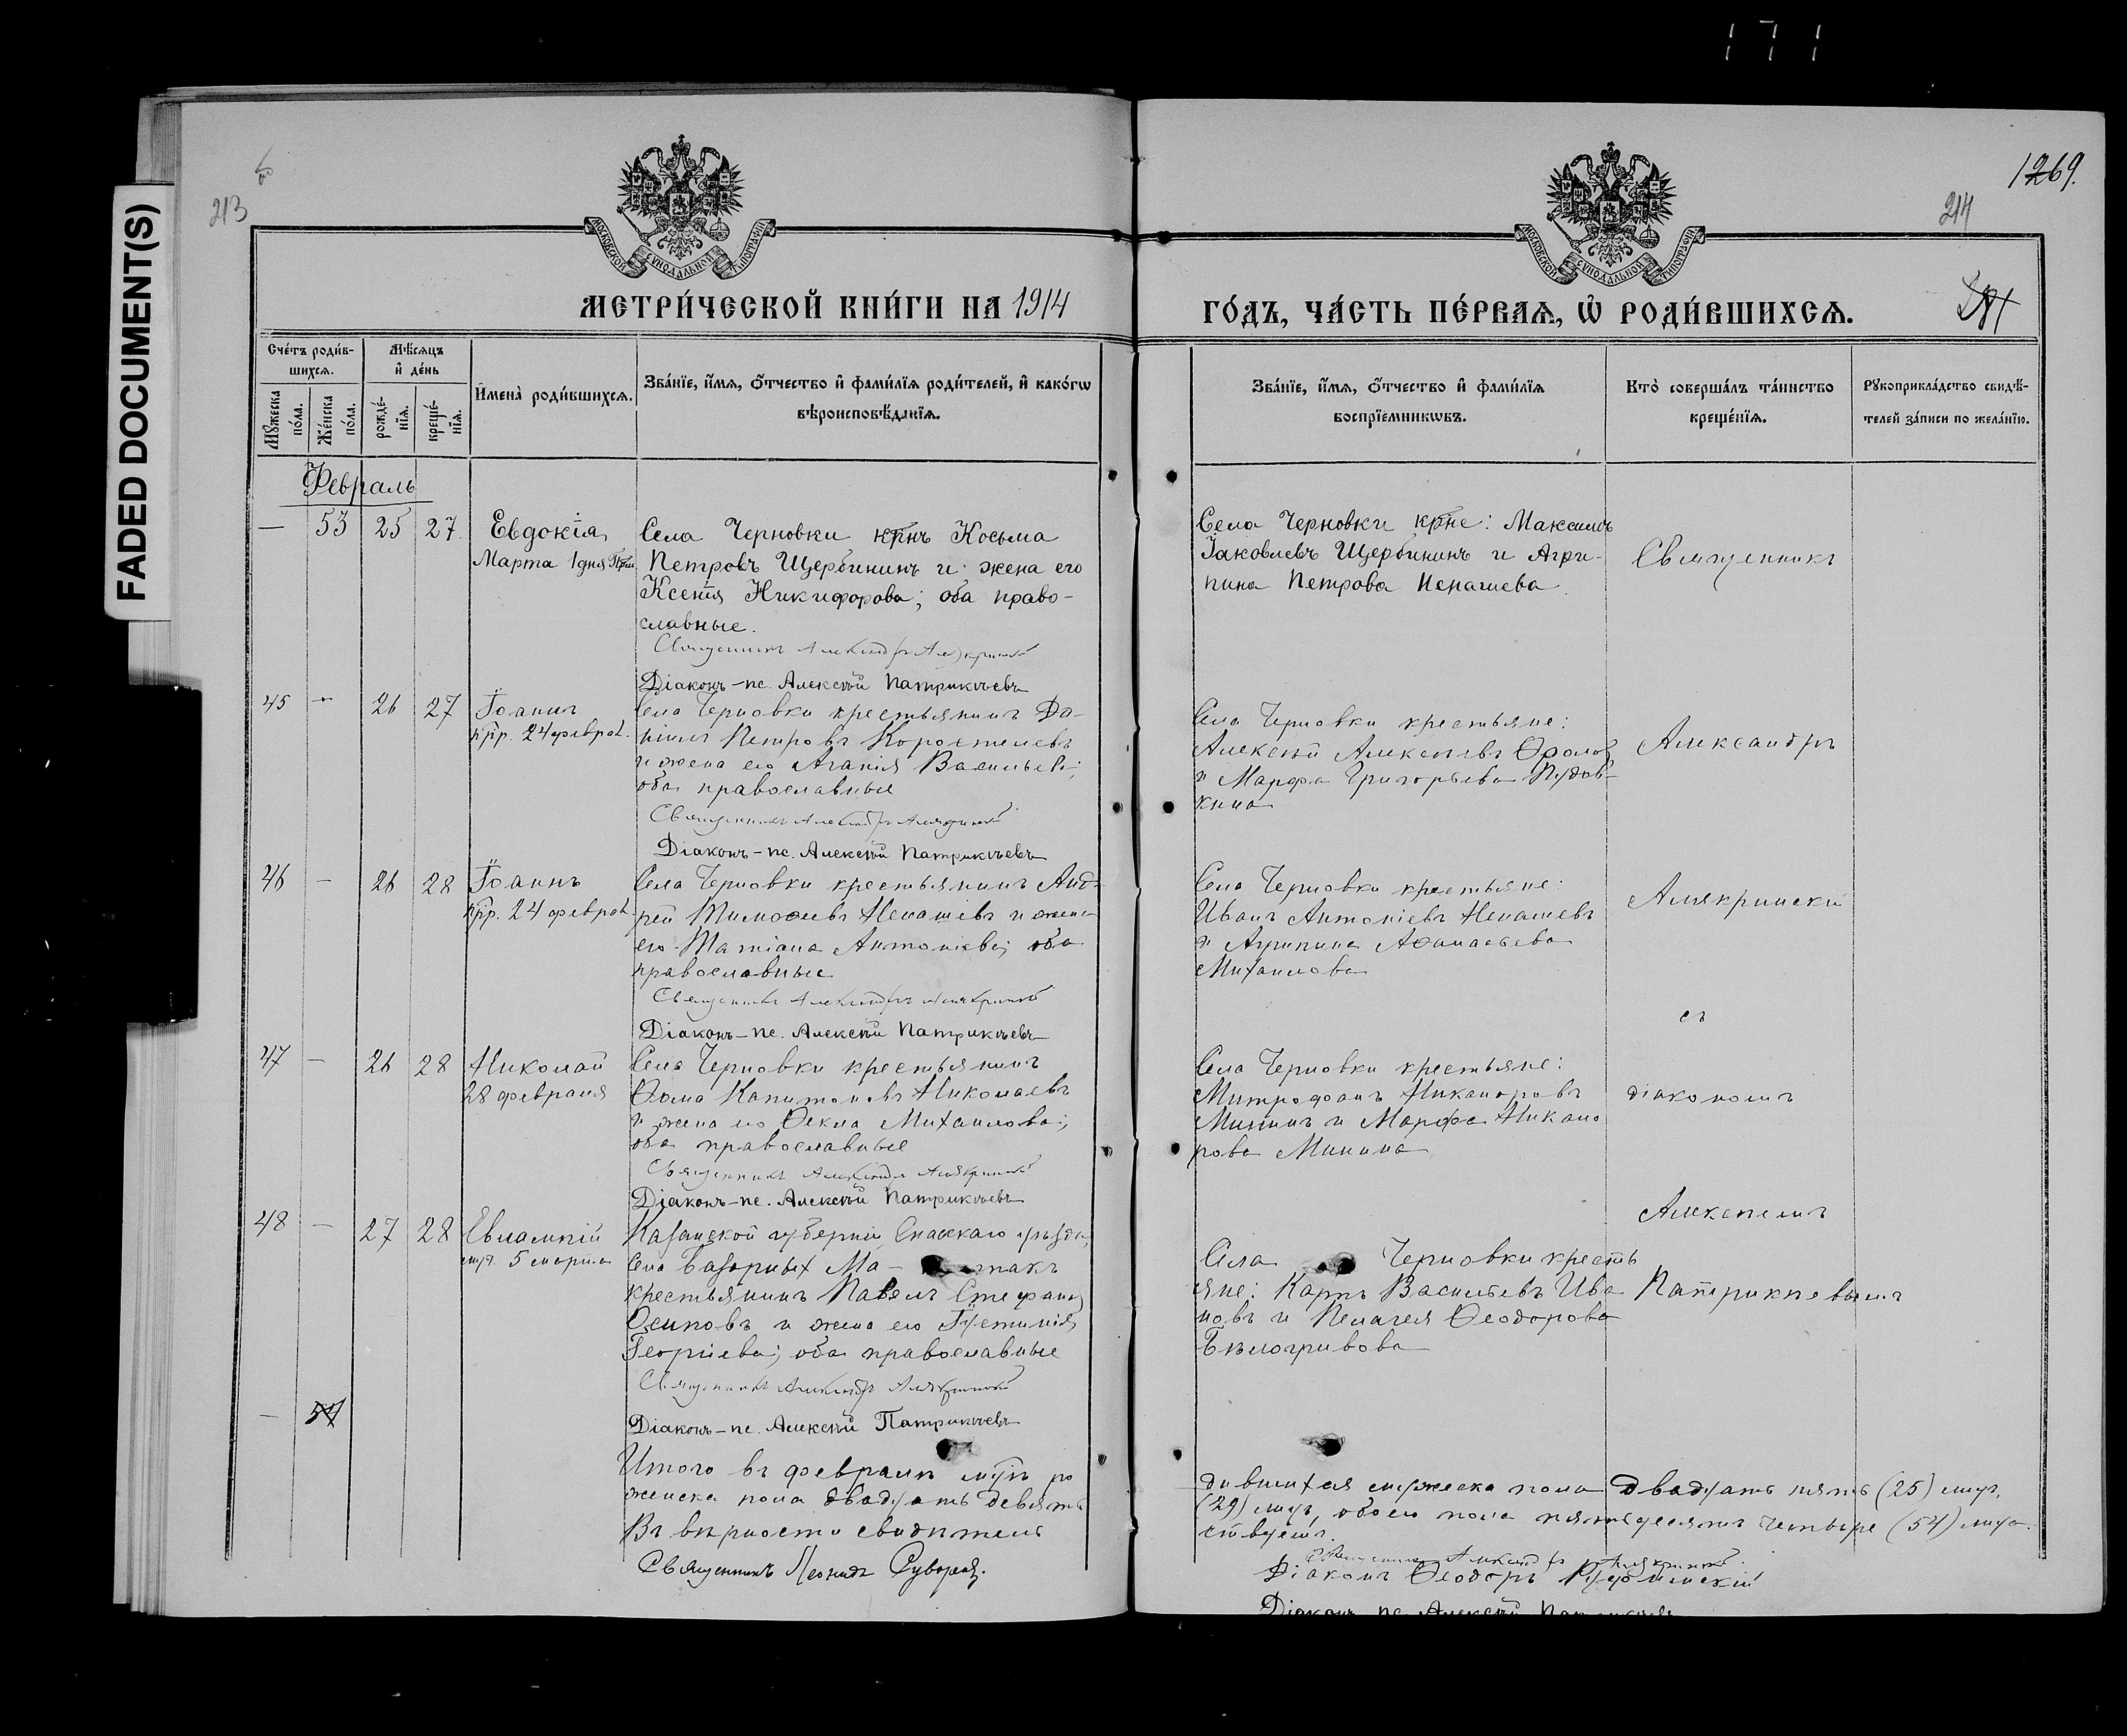 FADED DOCUMENT(S)
213
1269.
214
МОСКОВСКОЙ СУНОДАЛЬНОЙ ТИПОГРАФІИ
МОСКОВСКОЙ СУНОДАЛЬНОЙ ТИПОГРАФІИ
МЕТРИ́ЧЕСКОЙ КНИ́ГИ НА 1914
ГО́ДЪ, ЧА́СТЬ ПЕ́РВАѦ, Ѡ҆ РОДИ́ВШИХСѦ.
Сче́тъ роди́в-
шихсѧ.
Мꙋжеска
по́ла.
Же́нска
по́ла.
Мѣ́сѧцъ
и҆ де́нь
рожде́-
нїѧ.
креще́-
нїѧ.
И҆мена̀ роди́вшихсѧ.
Зва́нїе, и҆́мѧ, ѻ҆́тчество и҆ фами́лїѧ роди́телей, и҆ како́гѡ
вѣроисповѣ́данїѧ.
Зва́нїе, и҆́мѧ, ѻ҆́тчество и҆ фами́лїѧ
воспрїе́мникѡвъ.
Кто̀ соверша́лъ та́инство
креще́нїѧ.
Рꙋкоприкла́дство свидѣ́-
телей за́писи по жела́нїю.
Февраль
— 53 25 27 Евдокія
Марта 1 дня
Села Черновки крнъ Косьма
Петровъ Щербининъ и жена его
Ксенія Никифорова; оба право-
славные.
Священникъ Александръ Алякринскій
Діаконъ-пс. Алексѣй Патрикѣевъ
Села Черновки крне: Максимъ
Іаковлевъ Щербининъ и Агри-
пина Петрова Ненашева
Священникъ
45 — 26 27 Іоаннъ
прр. 24 феврал.
Села Черновки крестьянинъ Да-
ніилъ Петровъ Коростелевъ
и жена его Агапія Васильева;
оба православные
Священникъ Александръ Алякринскій
Діаконъ-пс. Алексѣй Патрикѣевъ
Села Черновки крестьяне:
Алексѣй Алексѣевъ Ѳроловъ
и Марфа Григорьева Пудов-
кина
Александръ
46 — 26 28 Іоаннъ
прр. 24 феврал.
Села Черновки крестьянинъ Анд-
рей Тимоѳеевъ Ненашевъ и жена
его Татіана Антоніева; оба
православные
Священникъ Александръ Алякринскій
Діаконъ-пс. Алексѣй Патрикѣевъ
Села Черновки крестьяне:
Иванъ Антоніевъ Ненашевъ
и Агрипина Аѳанасьева
Михаилова
Алякринскій
съ
47 — 26 28 Николай
28 февраля
Села Черновки крестьянинъ
Ѳома Капитоновъ Николаевъ
и жена его Ѳекла Михаилова;
оба православные
Священникъ Александръ Алякринскій
Діаконъ-пс. Алексѣй Патрикѣевъ
Села Черновки крестьяне:
Митрофанъ Никаноровъ
Мининъ и Марфа Никано
рова Минина
діакономъ
Алексѣемъ
48 — 27 28 Евлампій
муч. 5 марта
Казанской губерніи Спасскаго уѣзда,
села Базарныхъ Ма-
крестьянинъ Павелъ Стефановъ
Осиповъ и жена его
Георгіева; оба православные
Священникъ Александръ Алякринскій
Діаконъ-пс. Алексѣй Патрикѣевъ
Села Черновки кресть
яне: Карпъ Васильевъ Ива
новъ и Пелагея Ѳеодорова
Бѣлогривова
Патрикѣевымъ
— 54
Итого въ февралѣ мцѣ ро
дившихся мужеска пола двадцать пять (25) муж.
женска пола двадцать девять
(29) муж, обоего пола пятьдесятъ четыре (54) муж.
Въ вѣрности свидѣтель
ствуемъ.
Священникъ Леонидъ Суворовъ.
Священникъ Александръ Алякринскій
Діаконъ Ѳеодоръ
Діаконъ пс. Алексѣй Патрикѣевъ